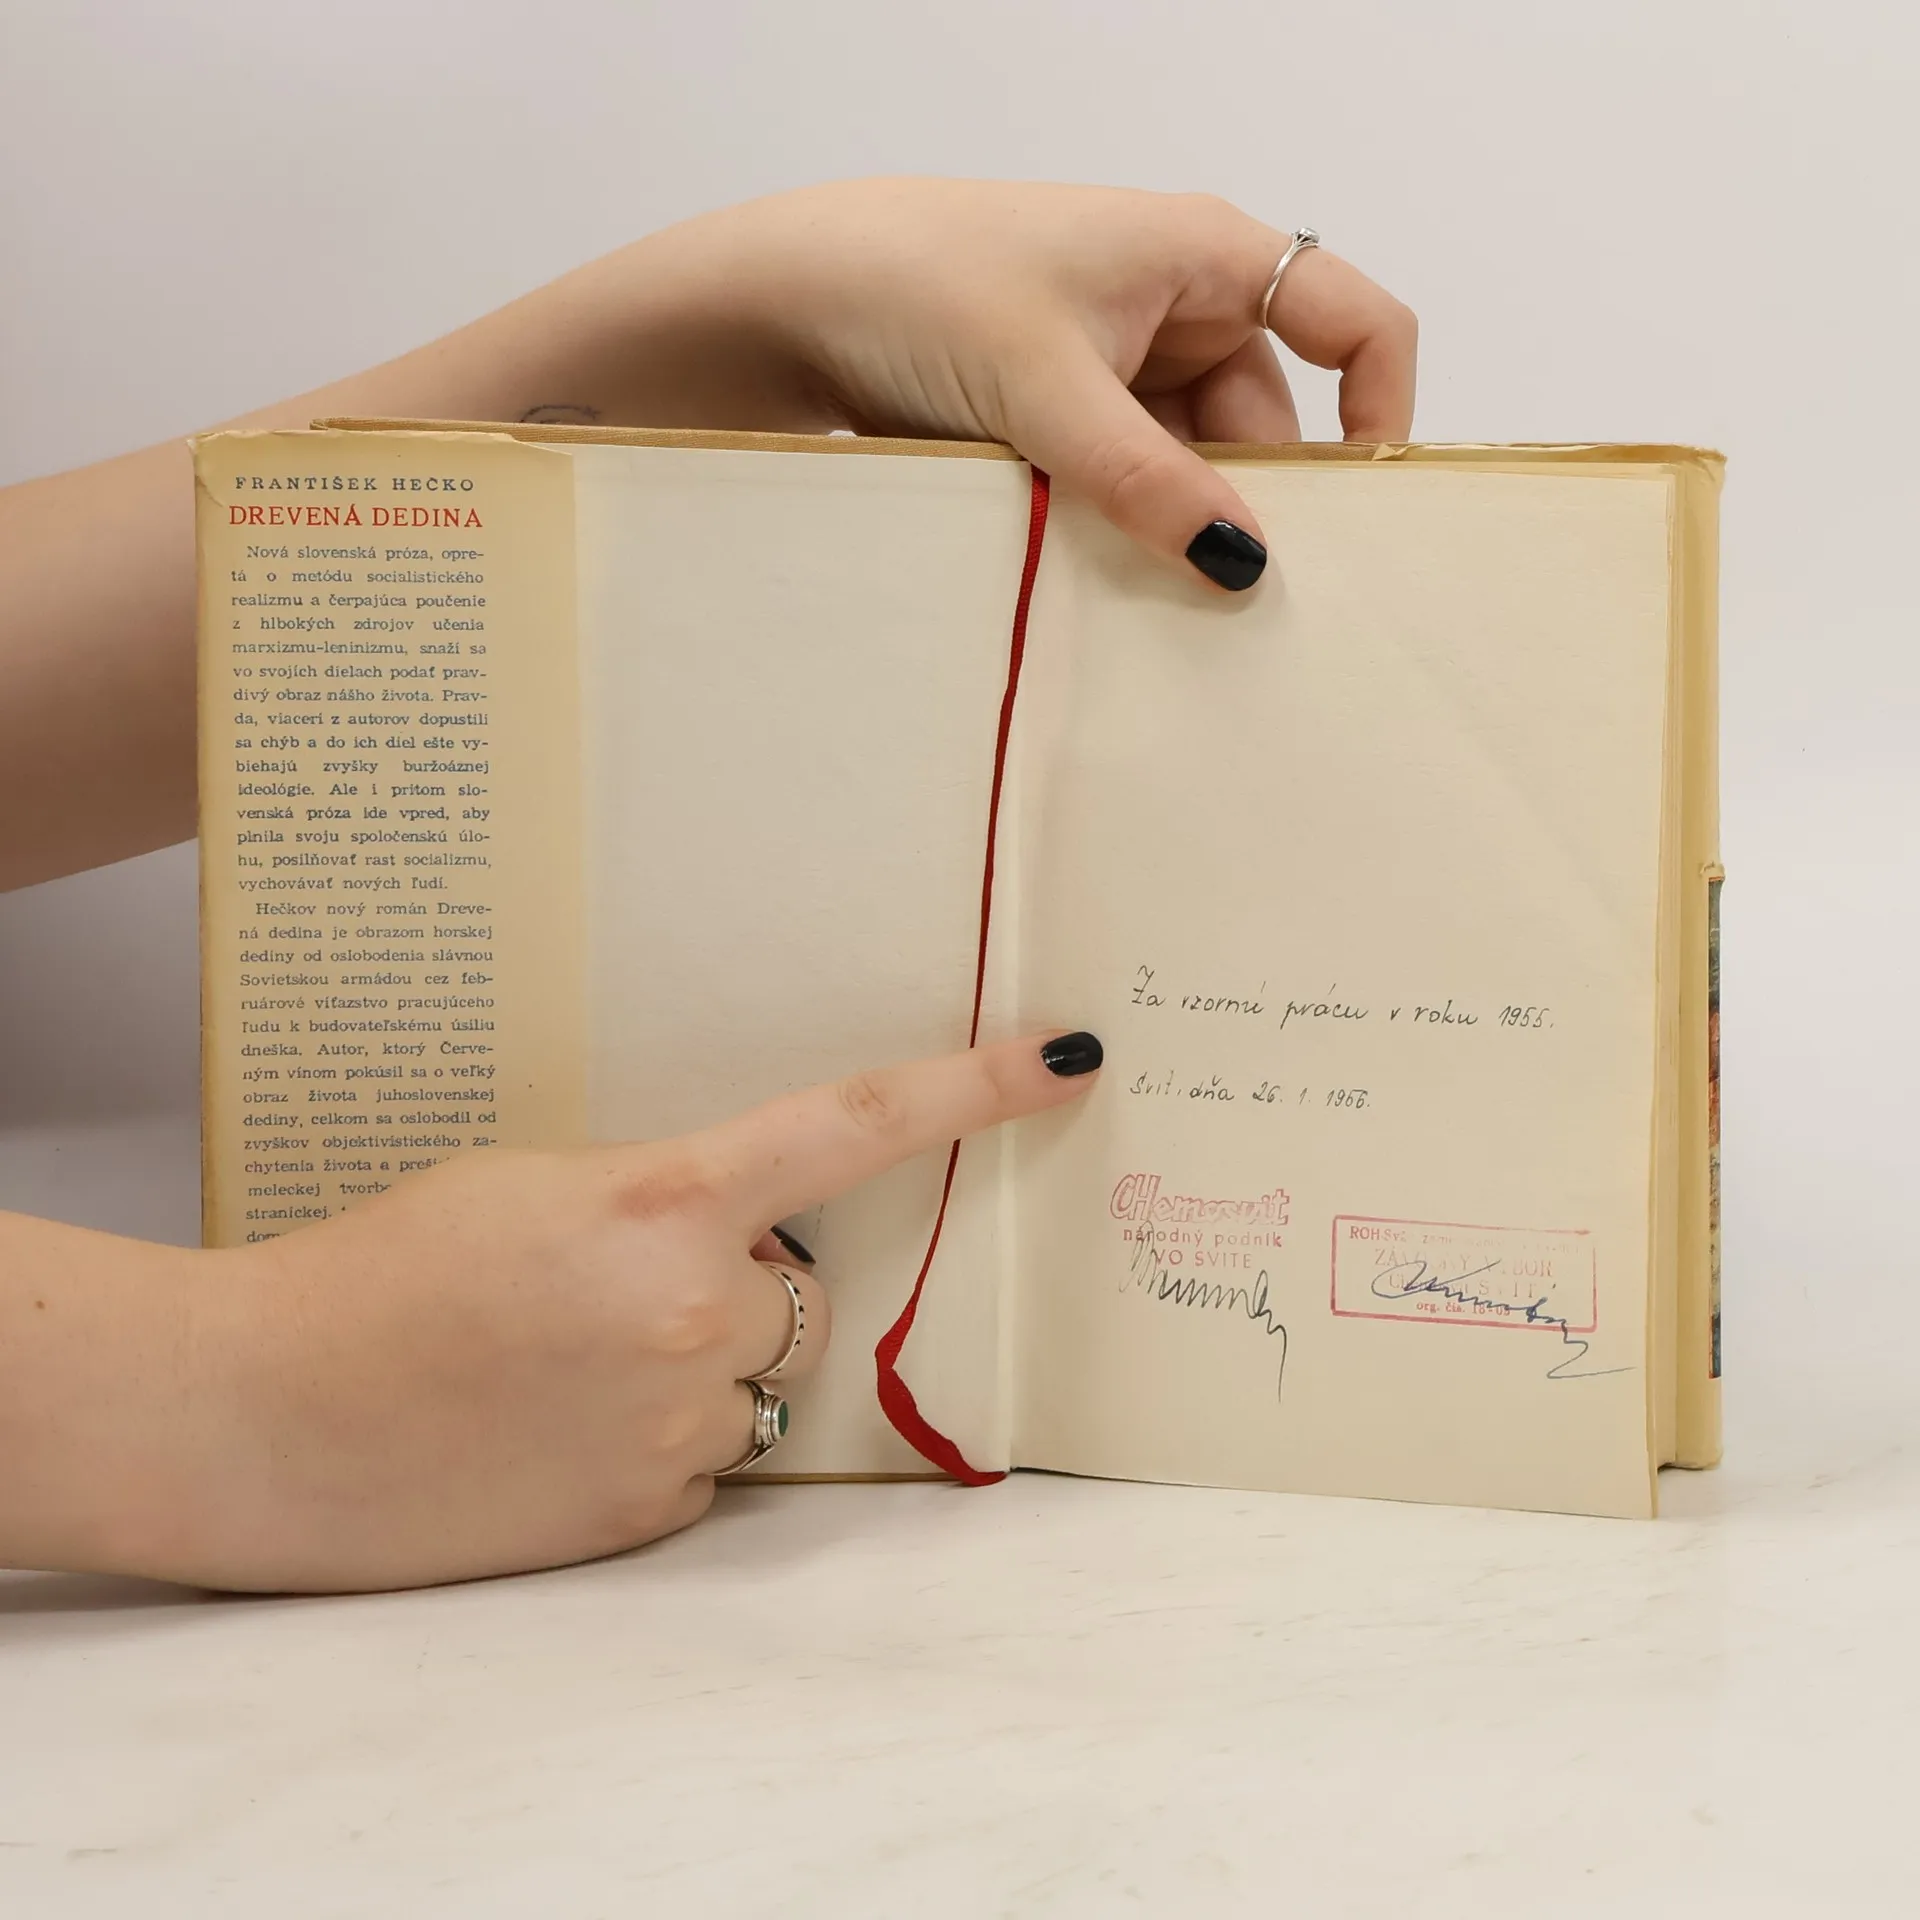 FRANTIŠEK HEČKO
DREVENÁ DEDINA
Nová slovenská próza, opre-
tá o metódu socialistického
realizmu a čerpajúca poučenie
z hlbokých zdrojov učenia
marxizmu-leninizmu, snaží sa
vo svojich dielach podať prav-
divý obraz nášho života. Prav-
da, viacerí z autorov dopustili
sa chýb a do ich diel ešte vy-
biehajú zvyšky buržoáznej
ideológie. Ale i pritom slo-
venská próza ide vpred, aby
plnila svoju spoločenskú úlo-
hu, posilňovať rast socializmu,
vychovávať nových ľudí.
Hečkov nový román Dreve-
ná dedina je obrazom horskej
dediny od oslobodenia slávnou
Sovietskou armádou cez feb-
ruárové víťazstvo pracujúceho
ľudu k budovateľskému úsiliu
dneška. Autor, ktorý Červe-
ným vínom pokúsil sa o veľký
obraz života juhoslovenskej
dediny, celkom sa oslobodil od
zvyškov objektivistického za-
chytenia života a
meleckej
straníckej.
Za vzornú prácu v roku 1955.
Svit, dňa 26. 1. 1956.
CHemosvit
národný podnik
VO SVITE
ROH-Sväz
ZÁVODNÝ VÝBOR
SVIT
org. čís. 18-03